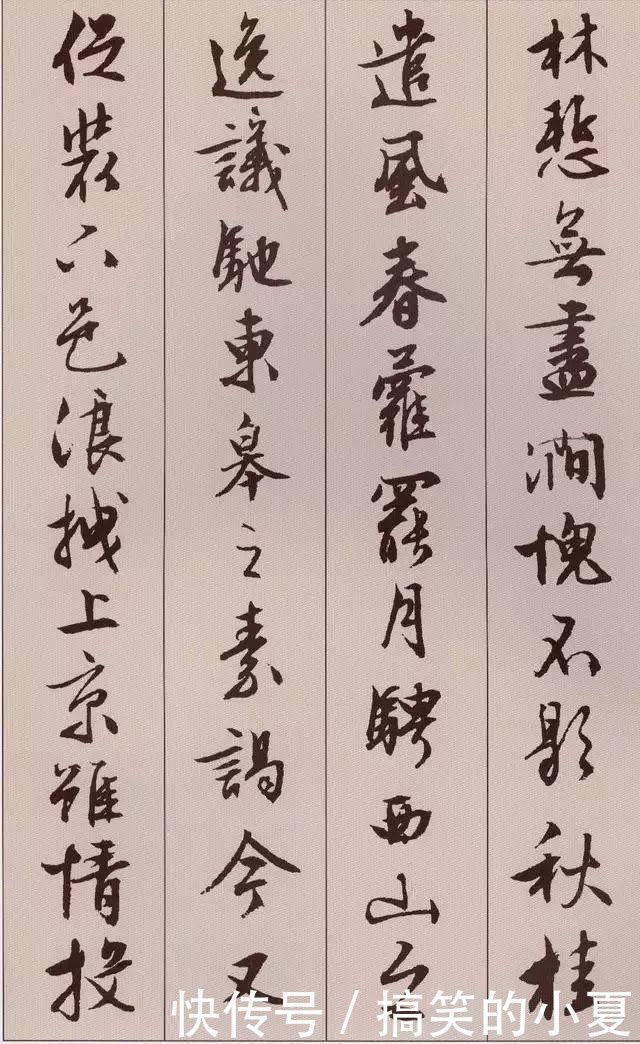 林慙無盡澗愧不歇秋桂
遣風春蘿罷月騁西山之
逸議馳東皋之素謁今又
促裝下邑浪拽上京雖情投
快传号 / 搞笑的小夏